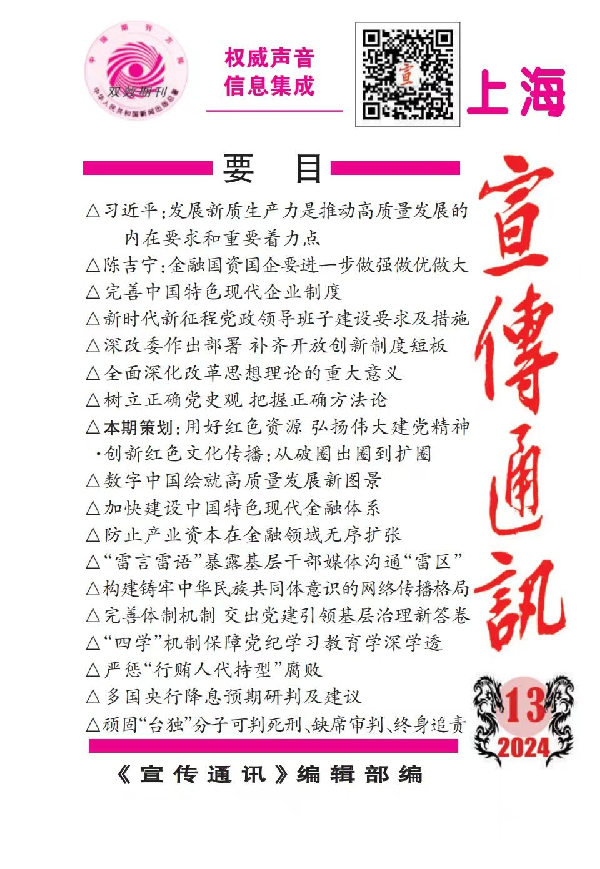 中国期刊方阵
双效期刊
中华人民共和国新闻出版总署
权威声音
信息集成
宣
上海
宣傳通訊
要 目
△习近平:发展新质生产力是推动高质量发展的
内在要求和重要着力点
△陈吉宁:金融国资国企要进一步做强做优做大
△完善中国特色现代企业制度
△新时代新征程党政领导班子建设要求及措施
△深改委作出部署 补齐开放创新制度短板
△全面深化改革思想理论的重大意义
△树立正确党史观 把握正确方法论
△本期策划:用好红色资源 弘扬伟大建党精神
·创新红色文化传播:从破圈出圈到扩圈
△数字中国绘就高质量发展新图景
△加快建设中国特色现代金融体系
△防止产业资本在金融领域无序扩张
△“雷言雷语”暴露基层干部媒体沟通“雷区”
△构建铸牢中华民族共同体意识的网络传播格局
△完善体制机制 交出党建引领基层治理新答卷
△“四学”机制保障党纪学习教育学深学透
△严惩“行贿人代持型”腐败
△多国央行降息预期研判及建议
△顽固“台独”分子可判死刑、缺席审判、终身追责
13
2024
《宣传通讯》编辑部编